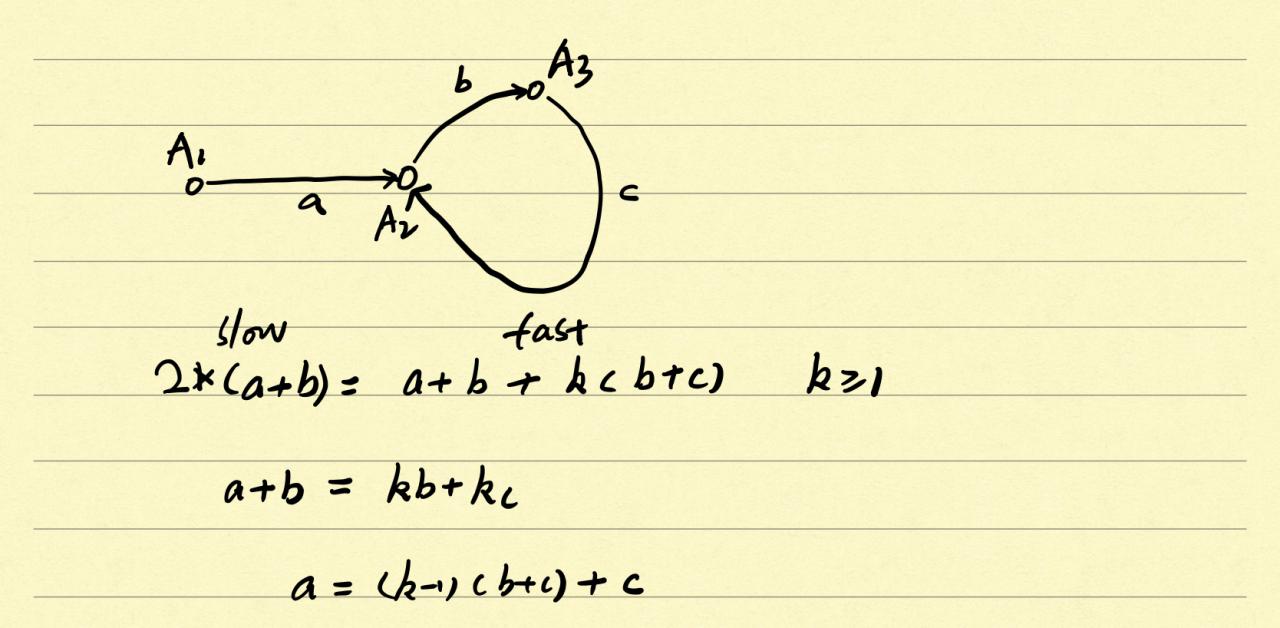 A3
b
A1
c
a
A2
slow fast
2*(a+b) = a+b + k(b+c) k≥1
a+b = kb+kc
a = (k-1)(b+c) + c